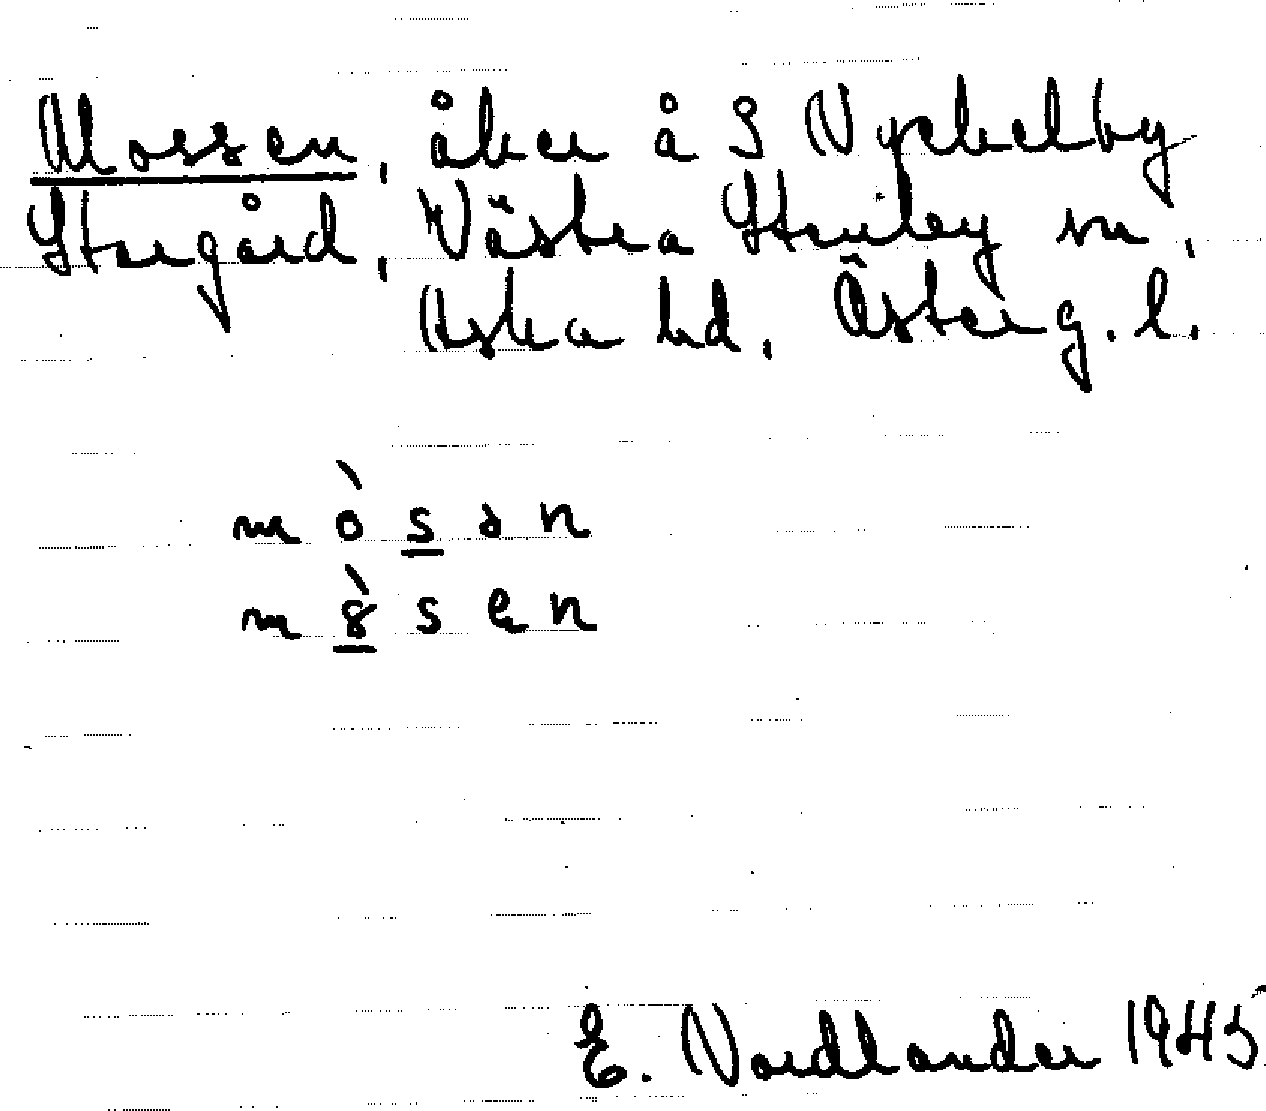 Mossen, åker å S Nyckelby
Storgård, Västra Stenby sn,
Aska hd, Österg. l.
mò̀sən
m sen
E. Nordlander 1945